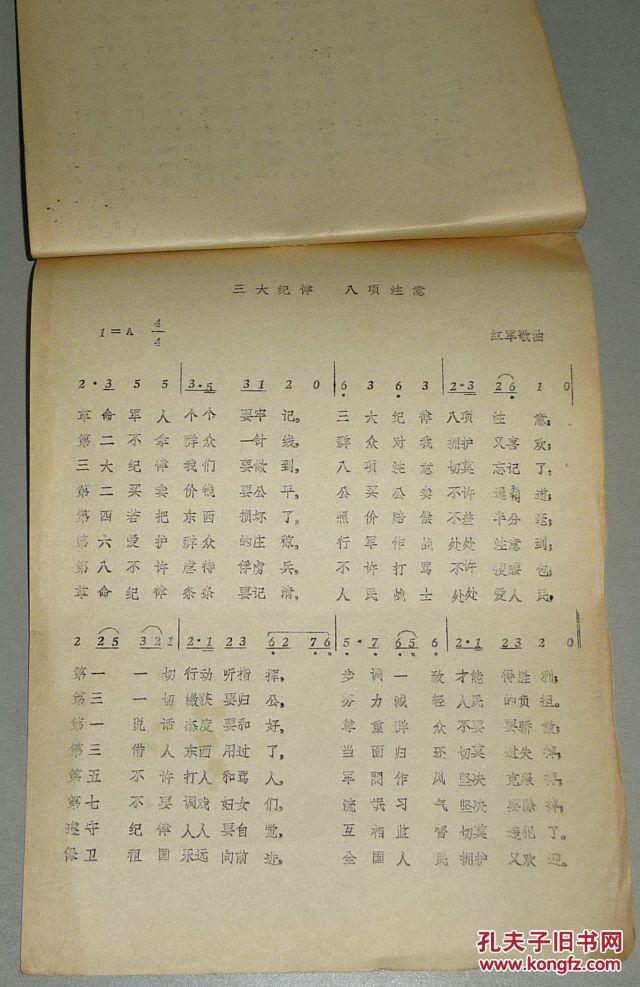 三大纪律 八项注意
1=A 4/4 红军歌曲
2·3 5 5 | 3·5 31 2 0 | 6 3 6 3 | 2·3 26 1 0 |
革命军人个个要牢记, 三大纪律八项注意;
第二不拿群众一针线, 群众对我拥护又喜欢;
三大纪律我们要做到, 八项注意切莫忘记了;
第二买卖价钱要公平, 公买公卖不许逞霸道;
第四若把东西损坏了, 照价赔偿不差半分毫;
第六爱护群众的庄稼, 行军作战处处注意到;
第八不许虐待俘虏兵, 不许打骂不许搜腰包;
革命纪律条条要记清, 人民战士处处爱人民;
2 25 321 | 2·1 23 62 76 | 5·7 65 6 | 2·1 23 2 0 |
第一一切行动听指挥, 步调一致才能得胜利;
第三一切缴获要归公, 努力减轻人民的负担。
第一说话态度要和好, 尊重群众不要骄傲;
第三借人东西用过了, 当面归还切莫遗失掉;
第五不许打人和骂人, 军阀作风坚决克服掉;
第七不要调戏妇女们, 流氓习气坚决要除掉;
遵守纪律人人要自觉, 互相监督切莫违犯了。
保卫祖国永远向前进, 全国人民拥护又欢迎。
孔夫子旧书网
www.kongfz.com